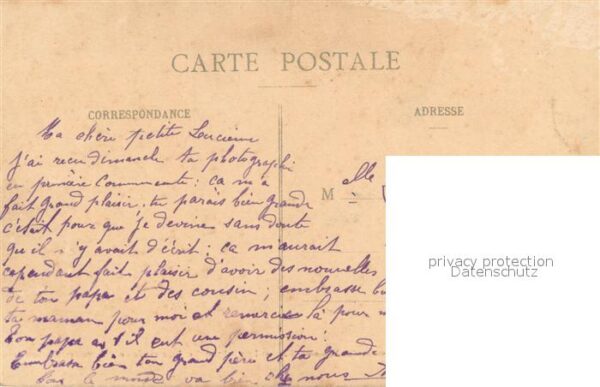 CARTE POSTALE
CORRESPONDANCE
ADRESSE
Ma chère petite Lucienne
j'ai recu dimanche ta photographi
en première Communiante : ca m'a
fait grand plaisir, tu parais bien grande
c'était pour que je devine sans doute
qu'il n'y avait d'écrit : ca m'aurait
cependant fait plaisir d'avoir des nouvelles
de ton papa et des cousin, embrasse
ta maman pour moi et remercies là pour
Ton papa a t il eut une permission.
Embrasse bien ton grand père et ta grande
le monde va bien chez nous
M elle
privacy protection
Datenschutz